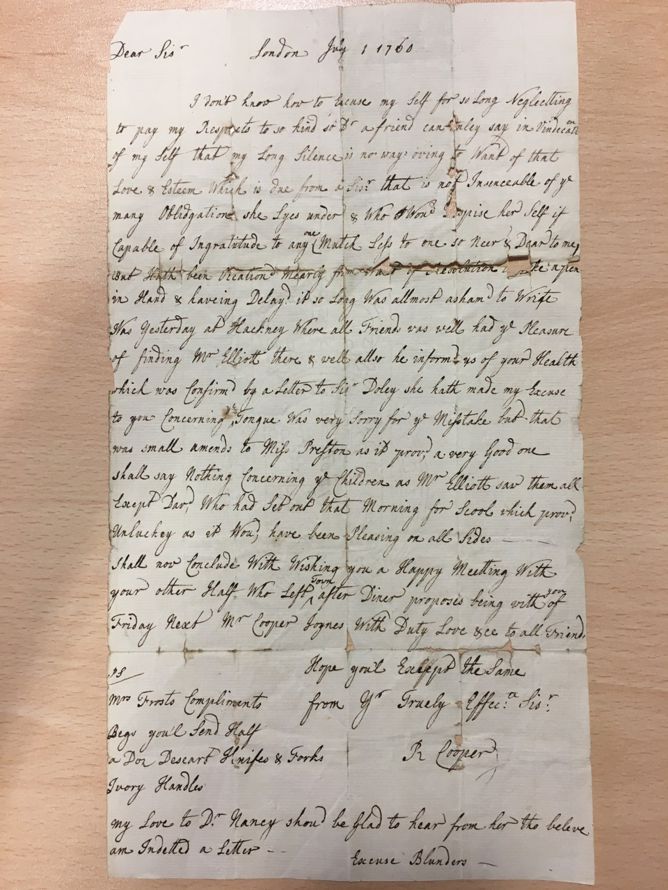 Dear Sisr London July 1 1760
I don't know how to Excuse my Self for so Long Neglecting
to pay my Respects to so kind so Dr a friend can onley say in Vindecation
of my Self that my Long Silence is no ways oving to Want of that
Love & Esteem Which is due from a Sisr that is not Insenceable of ye
many Oblidgations she Lyes under & Who Wou'd Dispise her Self if
Capable of Ingratitude to any one Mutch Less to one so Neer & Dear to me
But Hath been Ocation'd Mearly from Want of Resolution to take a pen
in Hand & haveing Delay'd it so Long Was allmost asham'd to Write
Was Yesterday at Hackney Where all Friends was well had ye Pleasure
of finding Mr Elliott there & well allso he inform'd us of your Health
which was Confirm'd by a Letter to Sisr Doley she hath made my Excuse
to you Concerning Tongue Was very Sorry for ye Misstake but that
was small amends to Miss Preston as it prov'd a very Good one
shall say Nothing Concerning ye Children as Mr Elliott saw them all
Except Davd Who had Set out that Morning for Scool which prov'd
Unluckey as it Wou'd have been Pleasing on all Sides
Shall now Conclude With Wishing you a Happy Meetting With
your other Half Who Left Town after Diner proposes being with you of
Friday Next Mr Cooper Joynes With Duty Love &ce to all Friends
Hope you'l Except the Same
from Yr Truely Effecta Sisr
R Cooper
PS
Mrs Frosts Compliments
Begs you'l Send Half
a Doz Descart Knifes & Forks
Ivory Handles
my Love to Dr Nancy shou'd be Glad to hear from her tho beleve
am Indetted a Letter
Excuse Blunders